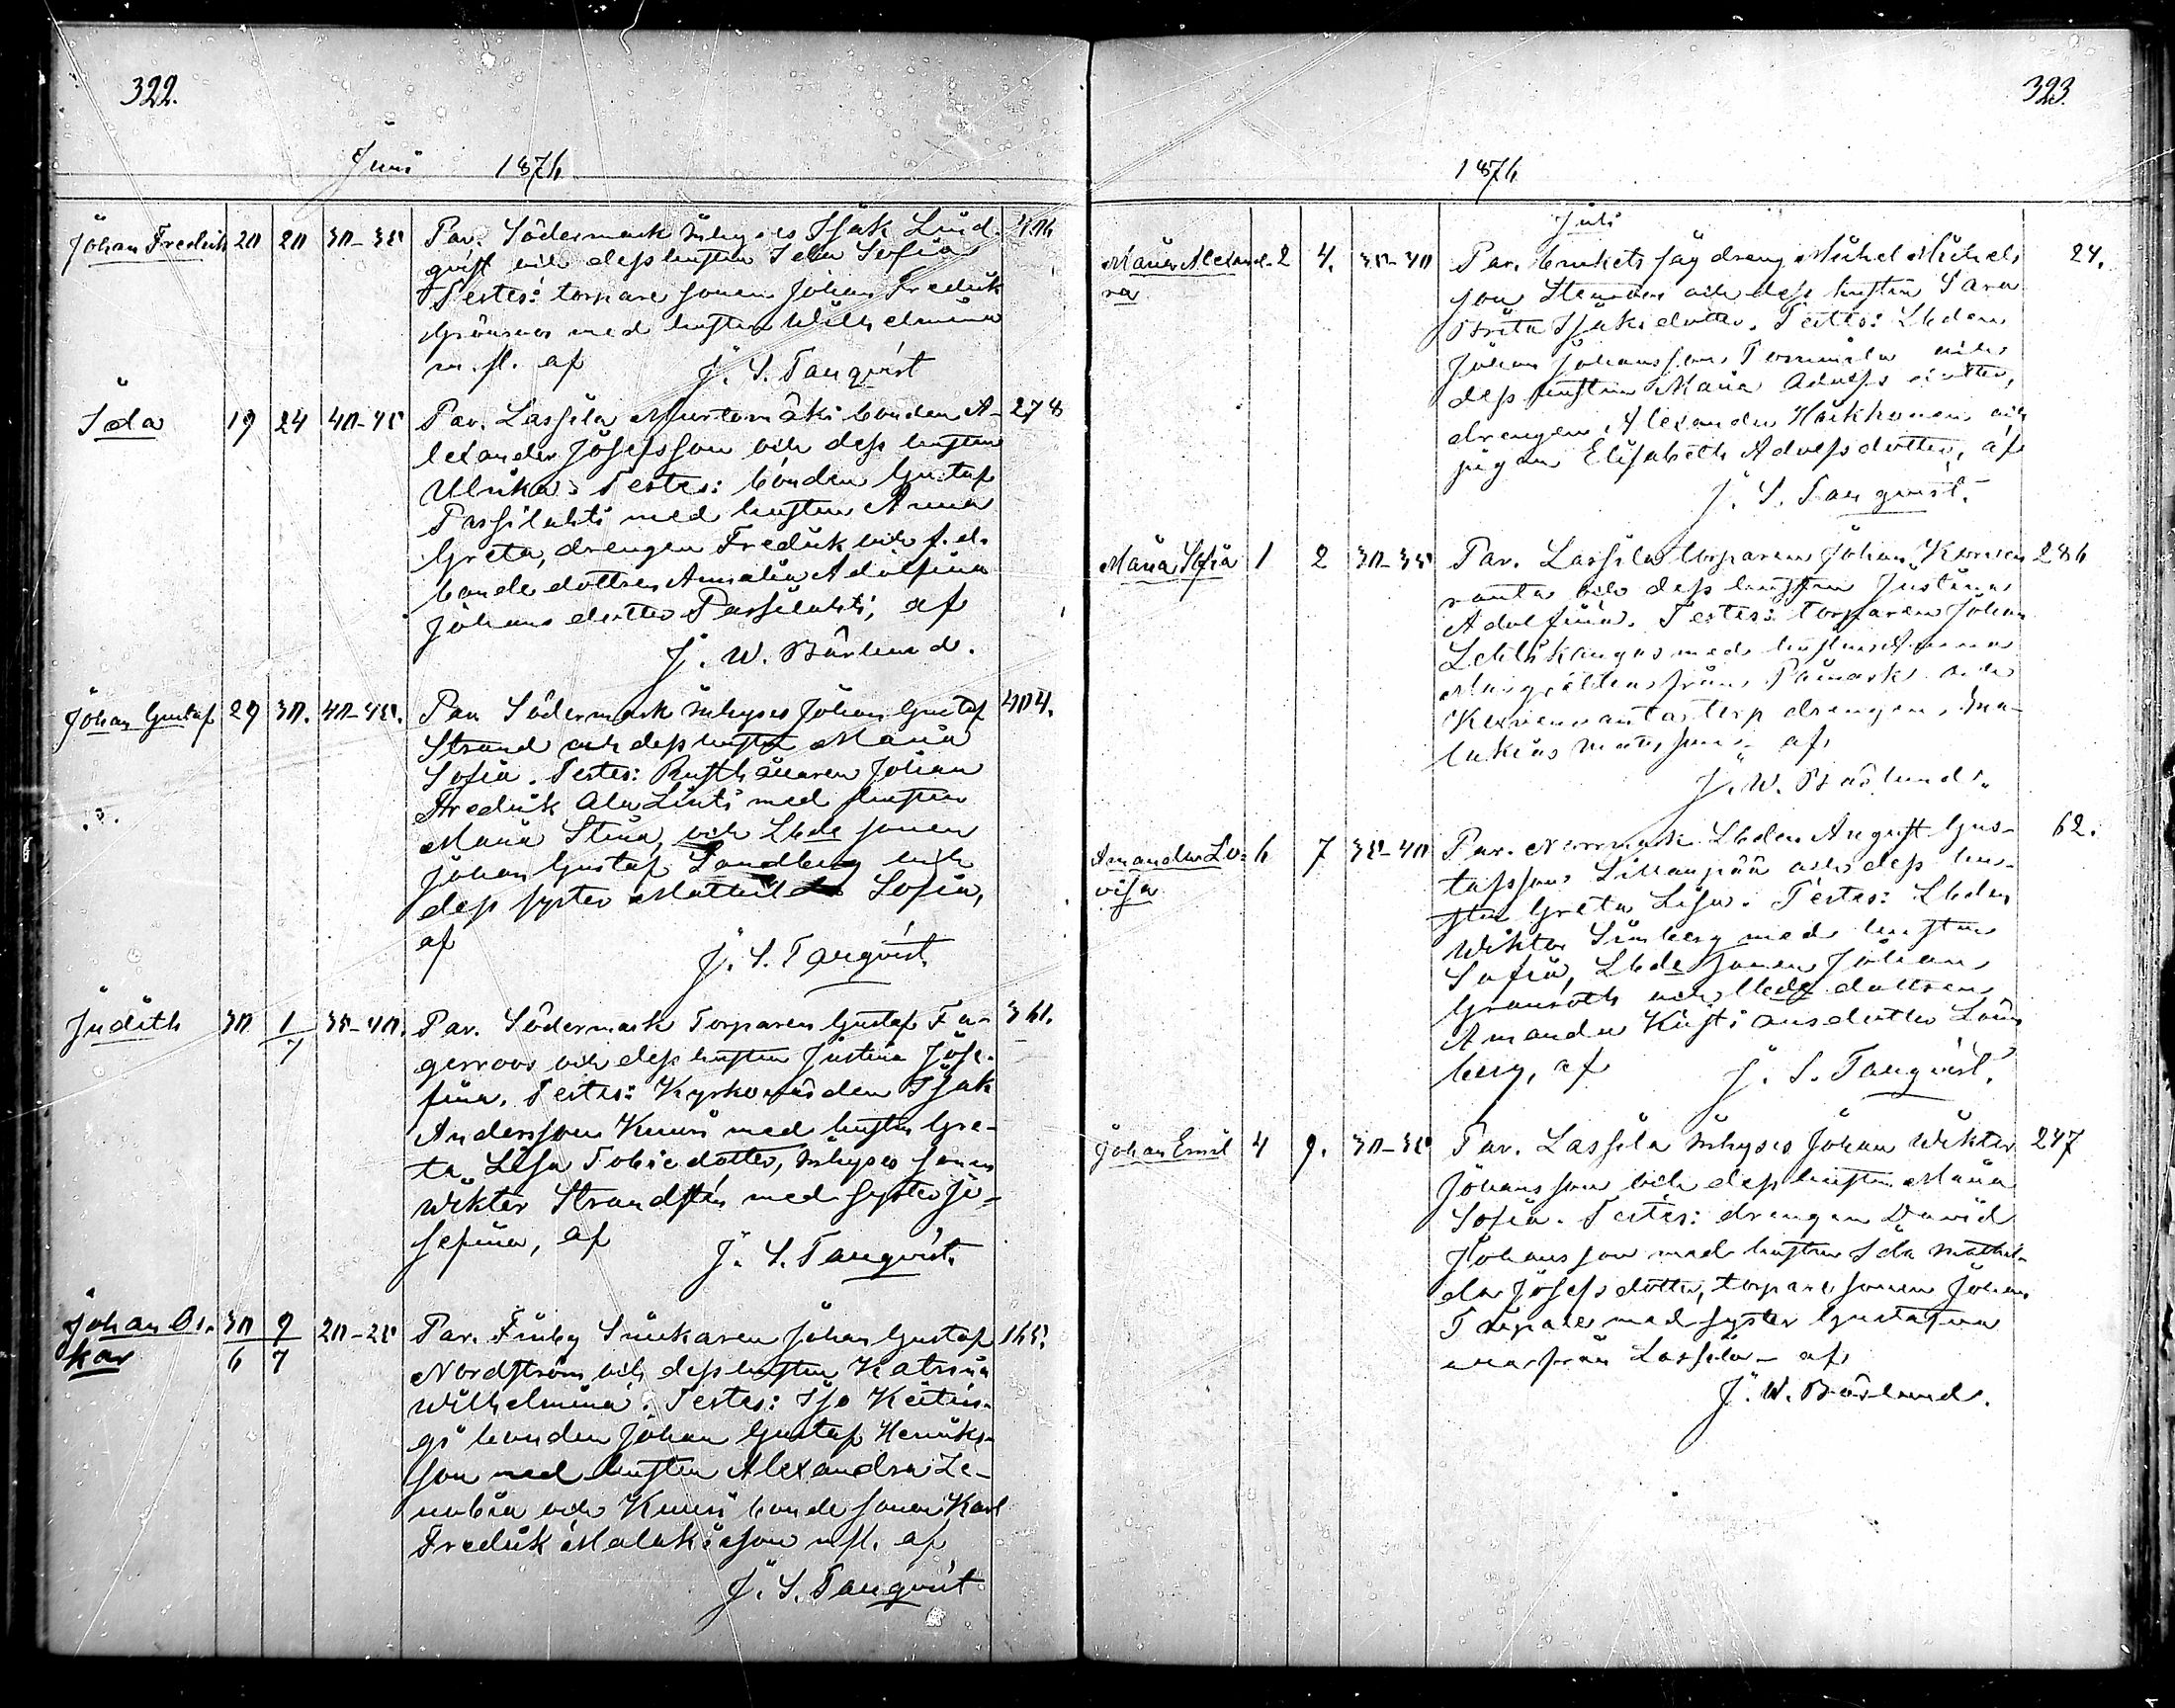 322.
Juni 1876
Johan Fredrik 20 20 30-35 Par. Södermark Inhyses Isak Lind- 406
qvist och dess hustru Ida Sofia
Testes: torpare sonen Johan Fredrik
Grönroos med hustru Wilhelmina
m. fl. af J. S. Tanqvist
Ida 19 24 40-45 Par. Lassila Murtomäki bonden A- 278
lexander Josefsson och dess hustru
Ulrika. Testes: bonden Gustaf
Passilahti med hustru Anna
Greta, drengen Fredrik och f.d.
bonde dottren Amalia Adolfina
Johans dotter Passilahti, af
J. W. Bärlund.
Johan Gustaf 29 30. 40-45. Par Södermark Inhyses Johan Gustaf 404.
Strand och dess hustru Maria
Sofia. Testes: Rusthållaren Johan
Fredrik Ala Linti med hustru
Maria Stina, och Lbde sonen
Johan Gustaf Sandberg och
dess syster Mathilda Sofia,
af J. S. Tanqvist
Judith 30 1/7 35-40. Par. Södermark Torparen Gustaf Fa- 361.
gerroos och dess hustru Justina Jose-
fina. Testes: Kyrkovärden Isak
Andersson Knuus med hustru Gre-
ta Lisa Tobiedotter, Inhyses sonen
Wiktor Strandsten med syster Jo-
sefina, af J. S. Tanqvist.
Johan Os- 30/6 9/7 20-25 Par. Finby Snickaren Johan Gustaf 165.
kar
Nordström och dess hustru Katrina
Wilhelmina. Testes: Iso
bonden Johan Gustaf Henriks-
son med hustru Alexandra Ze-
nobia och bonde sonen Karl
Fredrik Malakiasson mfl. af
J. S. Tanqvist
323.
1876
Juli
Maria Alexand- 2 4. 35-40 Par. Brukets såg dreng Mickel Mickels 24.
ra
son Stenroos och dess hustru Sara
Brita Isaksdotter. Testes: Lbden
Johan Johansson Tommila och
dess hustru Maria Adolfs dotter,
drengen Alexander Heikkonen och
pigan Elisabeth Adolfsdotter, af
J. S. Tanqvist.
Maria Sofia 1 2 30-35 Par. Lassila torparen Johan Korven 286
ranta och dess hustru Justina
Adolfina. Testes: torparen Johan
Lehtikangas med hustru Anna
från Påmark och
Korvenranta torp drengen, Ma-
lakias Matsson. af
J. W. Bärlund.
Amanda Lo- 6 7 35-40 Par. Norrmark Lbden August Gus- 62.
visa
tafsson Sillanpää och dess hu-
stru Greta Lisa. Testes: Lbden
Wiktor Sinberg med hustru
Sofia, Lbde sonen Johan
Granroth och Lbde dottren
Amanda Kristiansdotter Lön
berg, af J. S. Tanqvist.
Johan Emil 4 9. 30-35 Par. Lassila Inhyses Johan Wiktor 247
Johansson och dess hustru Maria
Sofia. Testes: drengen David
Johansson med hustru Ida Mathil-
da Josefsdotter, torpare sonen Johan
med syster Gustafva
alla från Lassila - af
J. W. Bärlund.